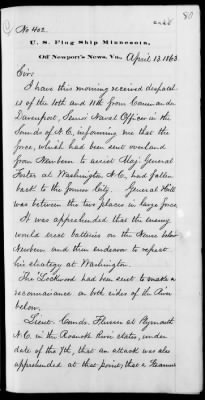 80
No 402.
U. S. Flag Ship Minnesota,
Off Newport's News, Va., April 13. 1863.
Sir:
I have this morning received despatch-
es of the 10th and 11th from Commander
Davenport, Senior Naval Officer in the
Sounds of N.C., informing me that the
force, which had been sent overland
from Newbern to assist Maj. General
Foster at Washington N.C., had fallen
back to the former City. General Hill
was between the two places in large force.
It was apprehended that the enemy
would erect batteries on the Neuse below
Newbern and then endeavor to repeat
his strategy at Washington.
The "Lockwood" had been sent to make a
reconnaissance on both sides of the River
below.
Lieut. Comdr. Flusser at Plymouth
N.C. in the Roanoke River states, under
date of the 9th, that an attack was also
apprehended at that point; that a Steamer